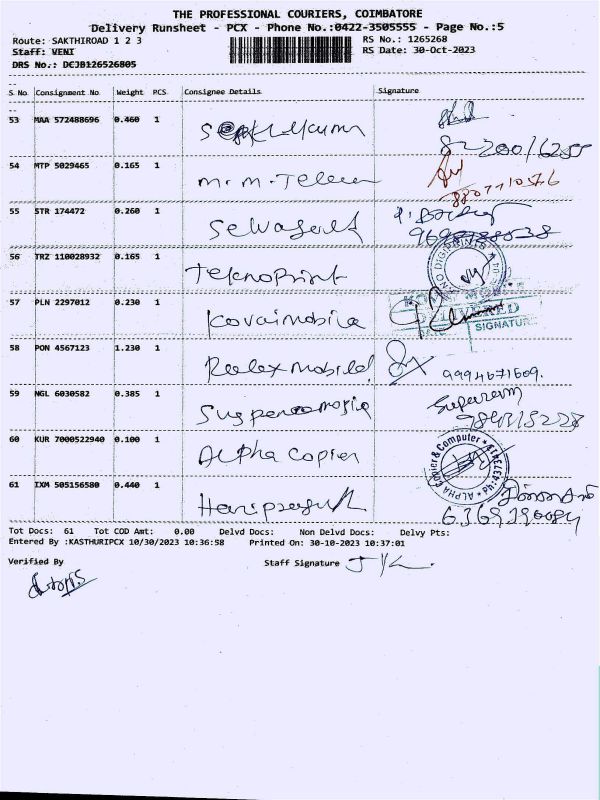 THE PROFESSIONAL COURIERS, COIMBATORE
Delivery Runsheet - PCX - Phone No.:0422-3505555 - Page No.:5
Route: SAKTHIROAD 1 2 3 RS No.: 1265268
Staff: VENI RS Date: 30-Oct-2023
DRS No.: DCJB126526805
S No Consignment No Weight PCS Consignee Details Signature
53 MAA 572488696 0.460 1
54 MTP 5029465 0.165 1 M.M. Telecom
8807710576
55 STR 174472 0.260 1
56 TRZ 110028932 0.165 1 Teknoprint
57 PLN 2297012 0.230 1 Kovaimobile
DELIVERED
SIGNATURE
58 PON 4567123 1.230 1 Relexmobile
9994671609.
59 NGL 6030582 0.385 1
60 KUR 7000522940 0.100 1 Alpha Copier
ALPHA Copier & Computer
61 IXM 505156580 0.440 1
Tot Docs: 61 Tot COD Amt: 0.00 Delvd Docs: Non Delvd Docs: Delvy Pts:
Entered By :KASTHURIPCX 10/30/2023 10:36:58 Printed On: 30-10-2023 10:37:01
Verified By Staff Signature